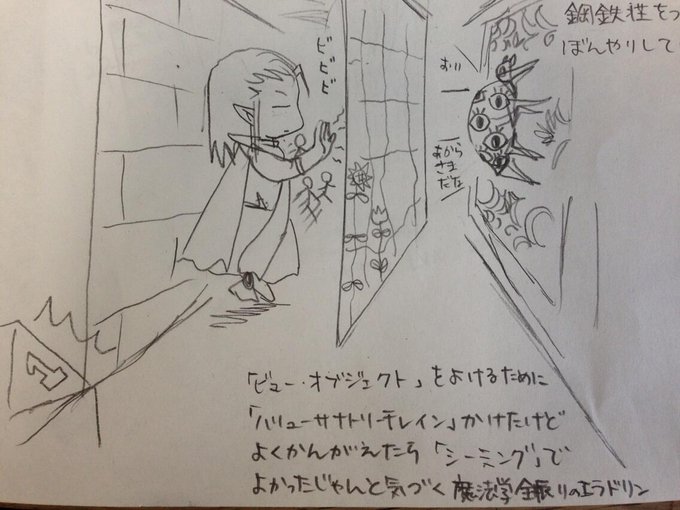 鋼鉄性をつ
ぼんやりして
ビビビ
おい
あから
さま
だな
「ビュー・オブジェクト」をよけるために
「ハリューサナトリーテレイン」かけたけど
よくかんがえたら「シーミング」で
よかったじゃんと気づく魔法学全振りのエラドリン